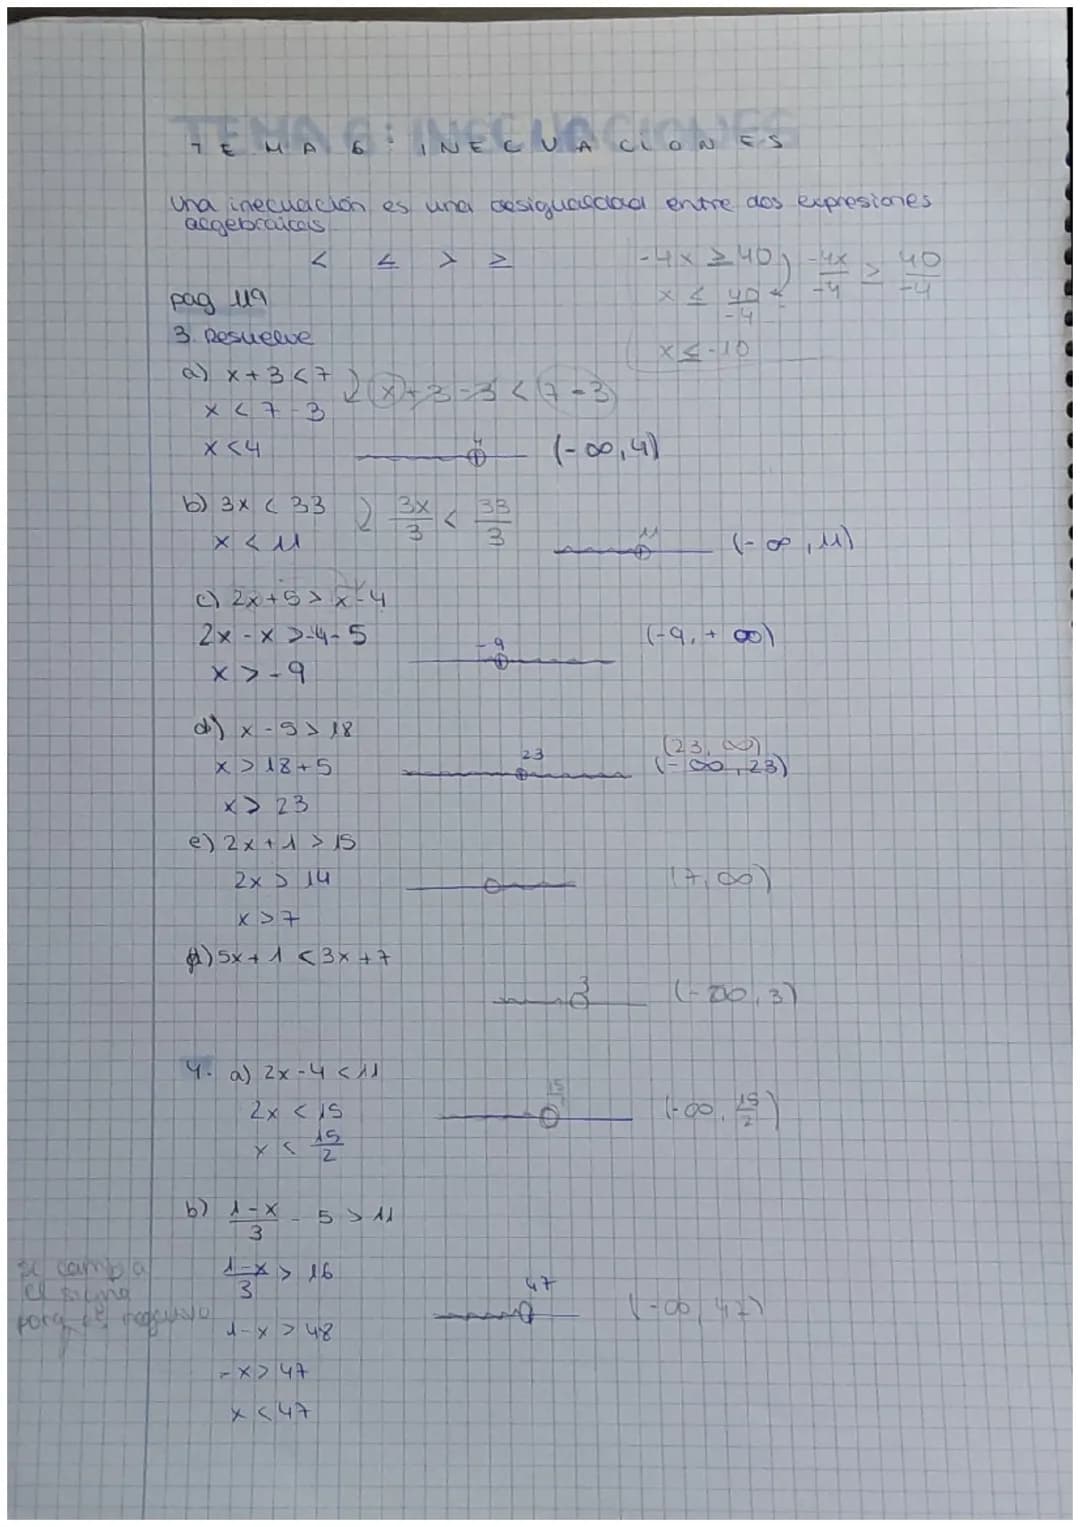 TEMA 6: INECUACIONES
Una inecuación es una desigualdad entre dos expresiones
algebraicas
< ≤ > ≥
-4x ≥ 40
-4x/-4 ≥ 40/-4
x ≤ 40/-4
x ≤ -10
pag 119
3. Resuelve
a) x + 3 < 7
x + 3 - 3 < 7 - 3
x < 7 - 3
x < 4
4
(-∞, 4)
b) 3x < 33
3x/3 < 33/3
x < 11
11
(-∞, 11)
c) 2x + 5 > x - 4
2x - x > -4 - 5
-9
(-9, + ∞)
x > -9
d) x - 5 > 18
x > 18 + 5
23
(23, ∞)
(-∞, 23)
x > 23
e) 2x + 1 > 15
2x > 14
(7, ∞)
x > 7
f) 5x + 1 < 3x + 7
3
(-∞, 3)
4. a) 2x - 4 < 11
2x < 15
15
(-∞, 15/2)
x < 15/2
b) 1-x/3 - 5 > 11
1-x/3 > 16
se cambia
el signo
porq es negativo
47
(-∞, 47)
1 - x > 48
-x > 47
x < 47